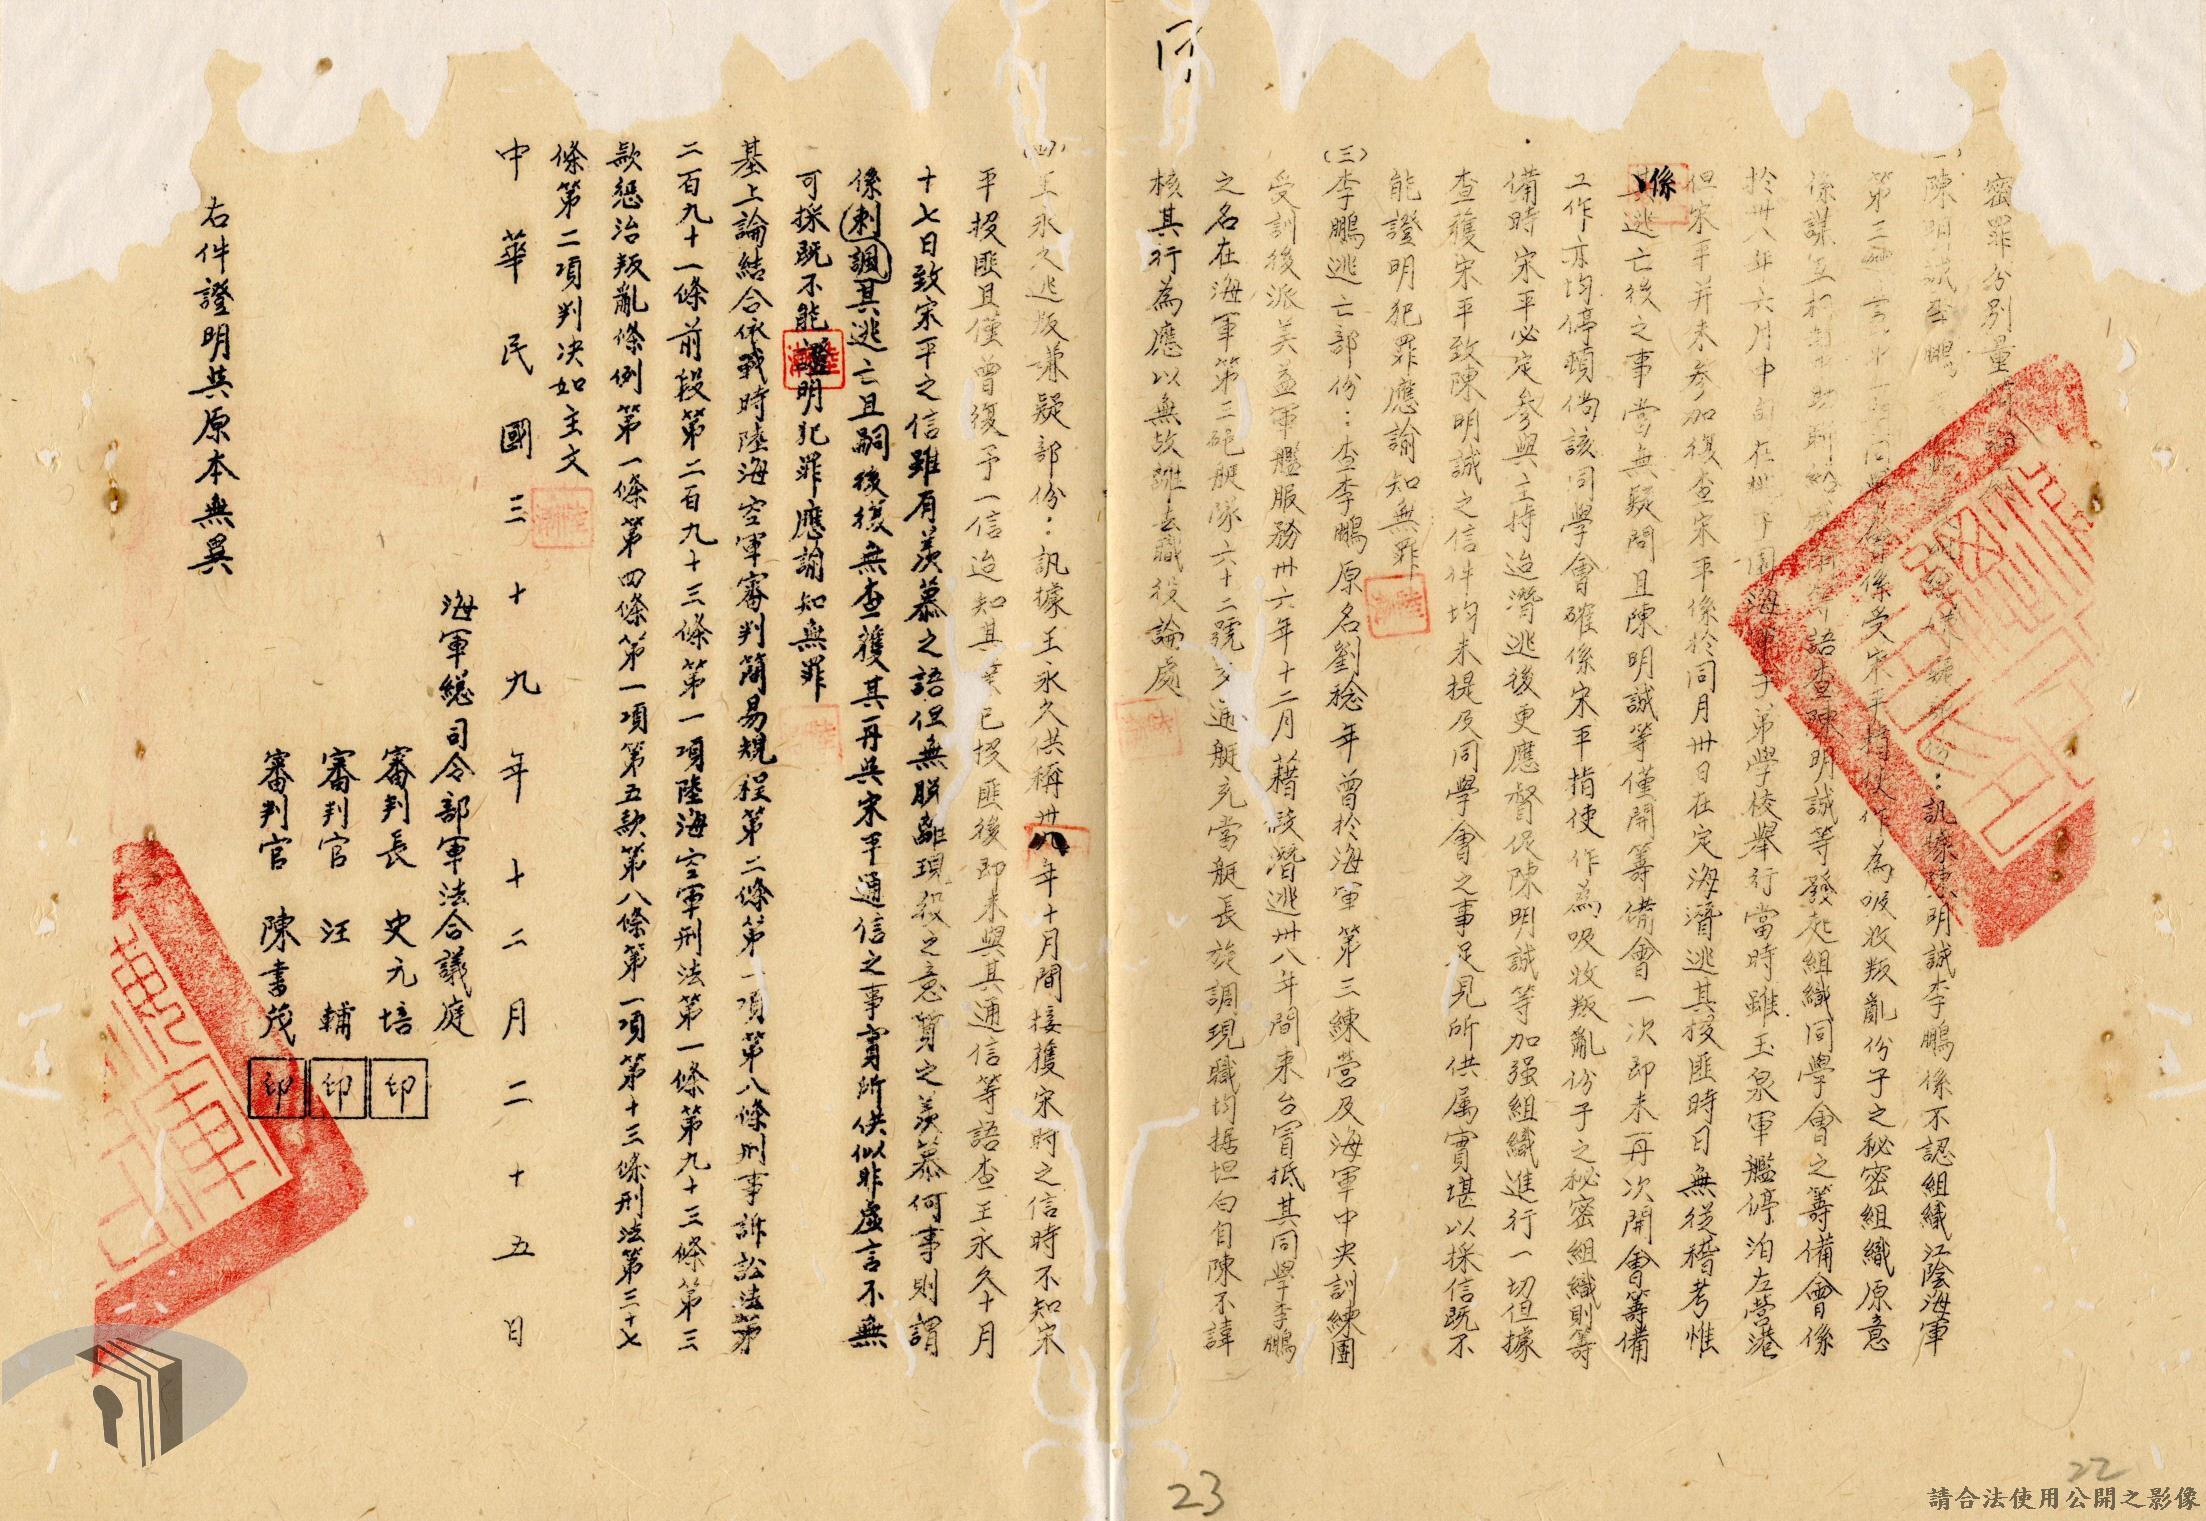 密罪分別量
陳明誠李鵬 訊據陳明誠李鵬係不認組織江陰海軍
第三 同學會係受宋平指使作為吸收叛亂份子之秘密組織原意
係謀互相 語查陳明誠等發起組織同學會之籌備會係
於卅八年六月中旬在桃子園海軍子弟學校舉行當時雖玉泉軍艦停泊左營港
但宋平并未參加復查宋平係於同月卅日在定海潛逃其投匪時日無從稽考惟
係其逃亡後之事當無疑問且陳明誠等僅開籌備會一次即未再次開會籌備
工作亦均停頓倘該同學會確係宋平指使作為吸收叛亂份子之秘密組織則籌
備時宋平必定參與主持迨潛逃後更應督促陳明誠等加强組織進行一切但據
查獲宋平致陳明誠之信件均未提及同學會之事足見所供屬實堪以採信既不
能證明犯罪應諭知無罪
(三)李鵬逃亡部份：查李鵬原名劉稔年曾於海軍第三練營及海軍中央訓練團
受訓後派美益軍艦服務卅六年十二月藉故潛逃卅八年間來台冒抵其同學李鵬
之名在海軍第三砲艇隊六十二號交通艇充當艇長旋調現職均据坦白自陳不諱
核其行為應以無故離去職役論處
(四)王永久逃叛嫌疑部份：訊據王永久供稱卅八年十月間接獲宋時之信時不知宋
平投匪且僅曾復予一信迨知其業已投匪後即未與其通信等語查王永久十月
十七日致宋平之信雖有羨慕之語但無脫離現役之意質之羨慕何事則謂
係刺諷其逃亡且嗣後復無查獲其再與宋平通信之事實所供似非虛言不無
可採既不能證明犯罪應諭知無罪
基上論結合依戰時陸海空軍審判簡易規程第二條第一項第八條刑事訴訟法第
二百九十一條前段第二百九十三條第一項陸海空軍刑法第一條第九十三條第三
款懲治叛亂條例第一條第四條第一項第五款第八條第一項第十三條刑法第三十七
條第二項判決如主文
中華民國三十九年十二月二十五日
海軍總司令部軍法合議庭
審判長 史元培 印
審判官 汪輔 印
審判官 陳書茂 印
右件證明與原本無異
23
22
請合法使用公開之影像